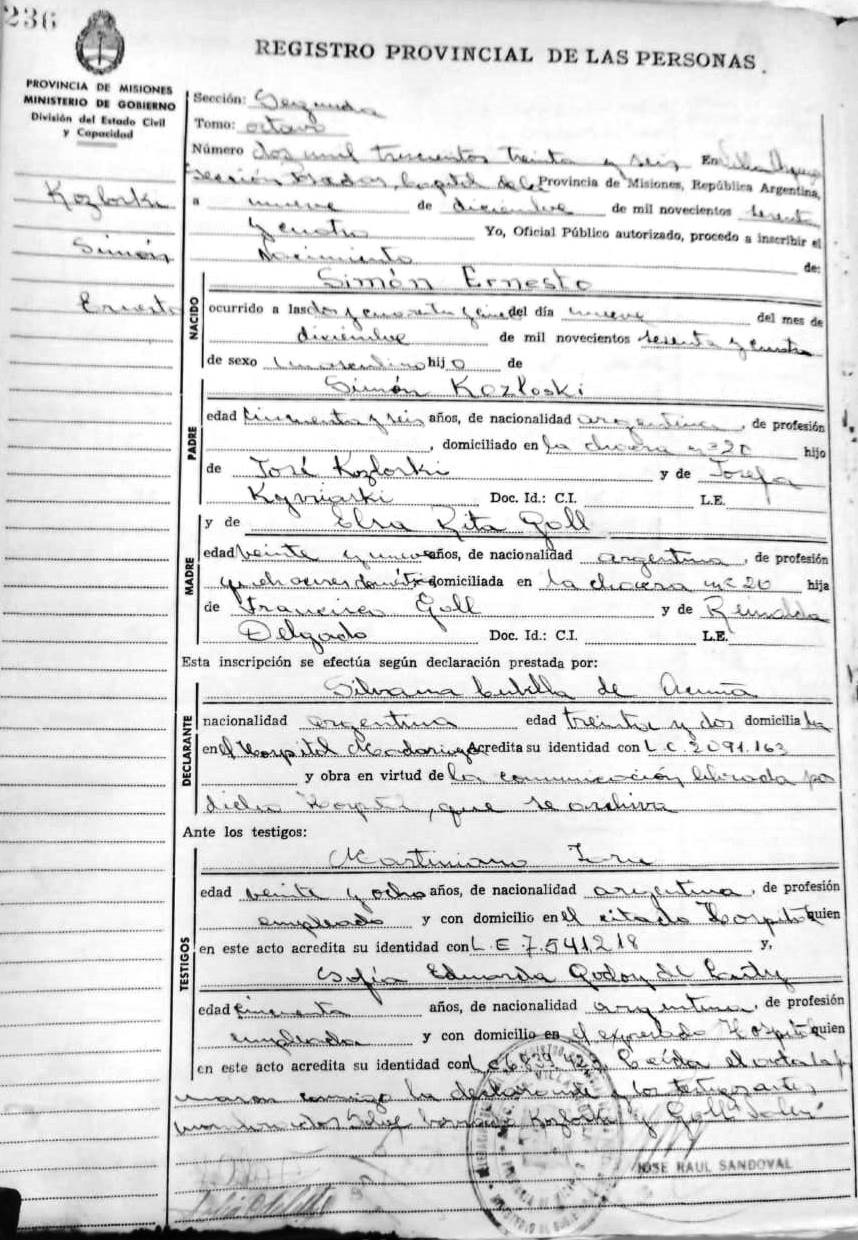 236
REGISTRO PROVINCIAL DE LAS PERSONAS.
PROVINCIA DE MISIONES
MINISTERIO DE GOBIERNO
División del Estado Civil
y Capacidad
Kozloski
Simón
Ernesto
Sección: Segunda
Tomo: octavo
Número dos mil trescientos treinta y seis En Villa
Sección hospital Provincia de Misiones, República Argentina,
a nueve de diciembre de mil novecientos sesenta
y cuatro Yo, Oficial Público autorizado, procedo a inscribir el
Nacimiento de:
NACIDO
Simón Ernesto
ocurrido a las dos y cuarenta y cinco del día nueve del mes de
diciembre de mil novecientos sesenta y cuatro
de sexo masculino hijo de
PADRE
Simón Kozloski
edad cincuenta y seis años, de nacionalidad argentina, de profesión
, domiciliado en la chacra nº 20 hijo
de José Kozloski y de Josefa
Doc. Id.: C.I. L.E.
MADRE
y de Elsa Rita Goll
edad veinte y años, de nacionalidad argentina, de profesión
quehaceres domiciliada en la chacra nº 20 hija
de Francisco Goll y de Reinalda
Delgado Doc. Id.: C.I. L.E.
Esta inscripción se efectúa según declaración prestada por:
DECLARANTE
Silvana Cubilla de Acuña
nacionalidad argentina edad treinta y dos domicilia da
en el Hospital Madariaga acredita su identidad con L.C. 2.091.163
y obra en virtud de la comunicación librada por
dicho Hospital, que se archiva
Ante los testigos:
TESTIGOS
Martiniano
edad veinte y ocho años, de nacionalidad argentina, de profesión
empleado y con domicilio en el citado Hospital quien
en este acto acredita su identidad con L.E 7.541.218 y,
Sofía Eduarda Godoy de
edad cincuenta años, de nacionalidad argentina, de profesión
empleada y con domicilio en el expresado Hospital quien
en este acto acredita su identidad con Leída el acta la
conmigo la declarante y los testigos antes
nombrados Kozloski y Goll
JOSE RAUL SANDOVAL